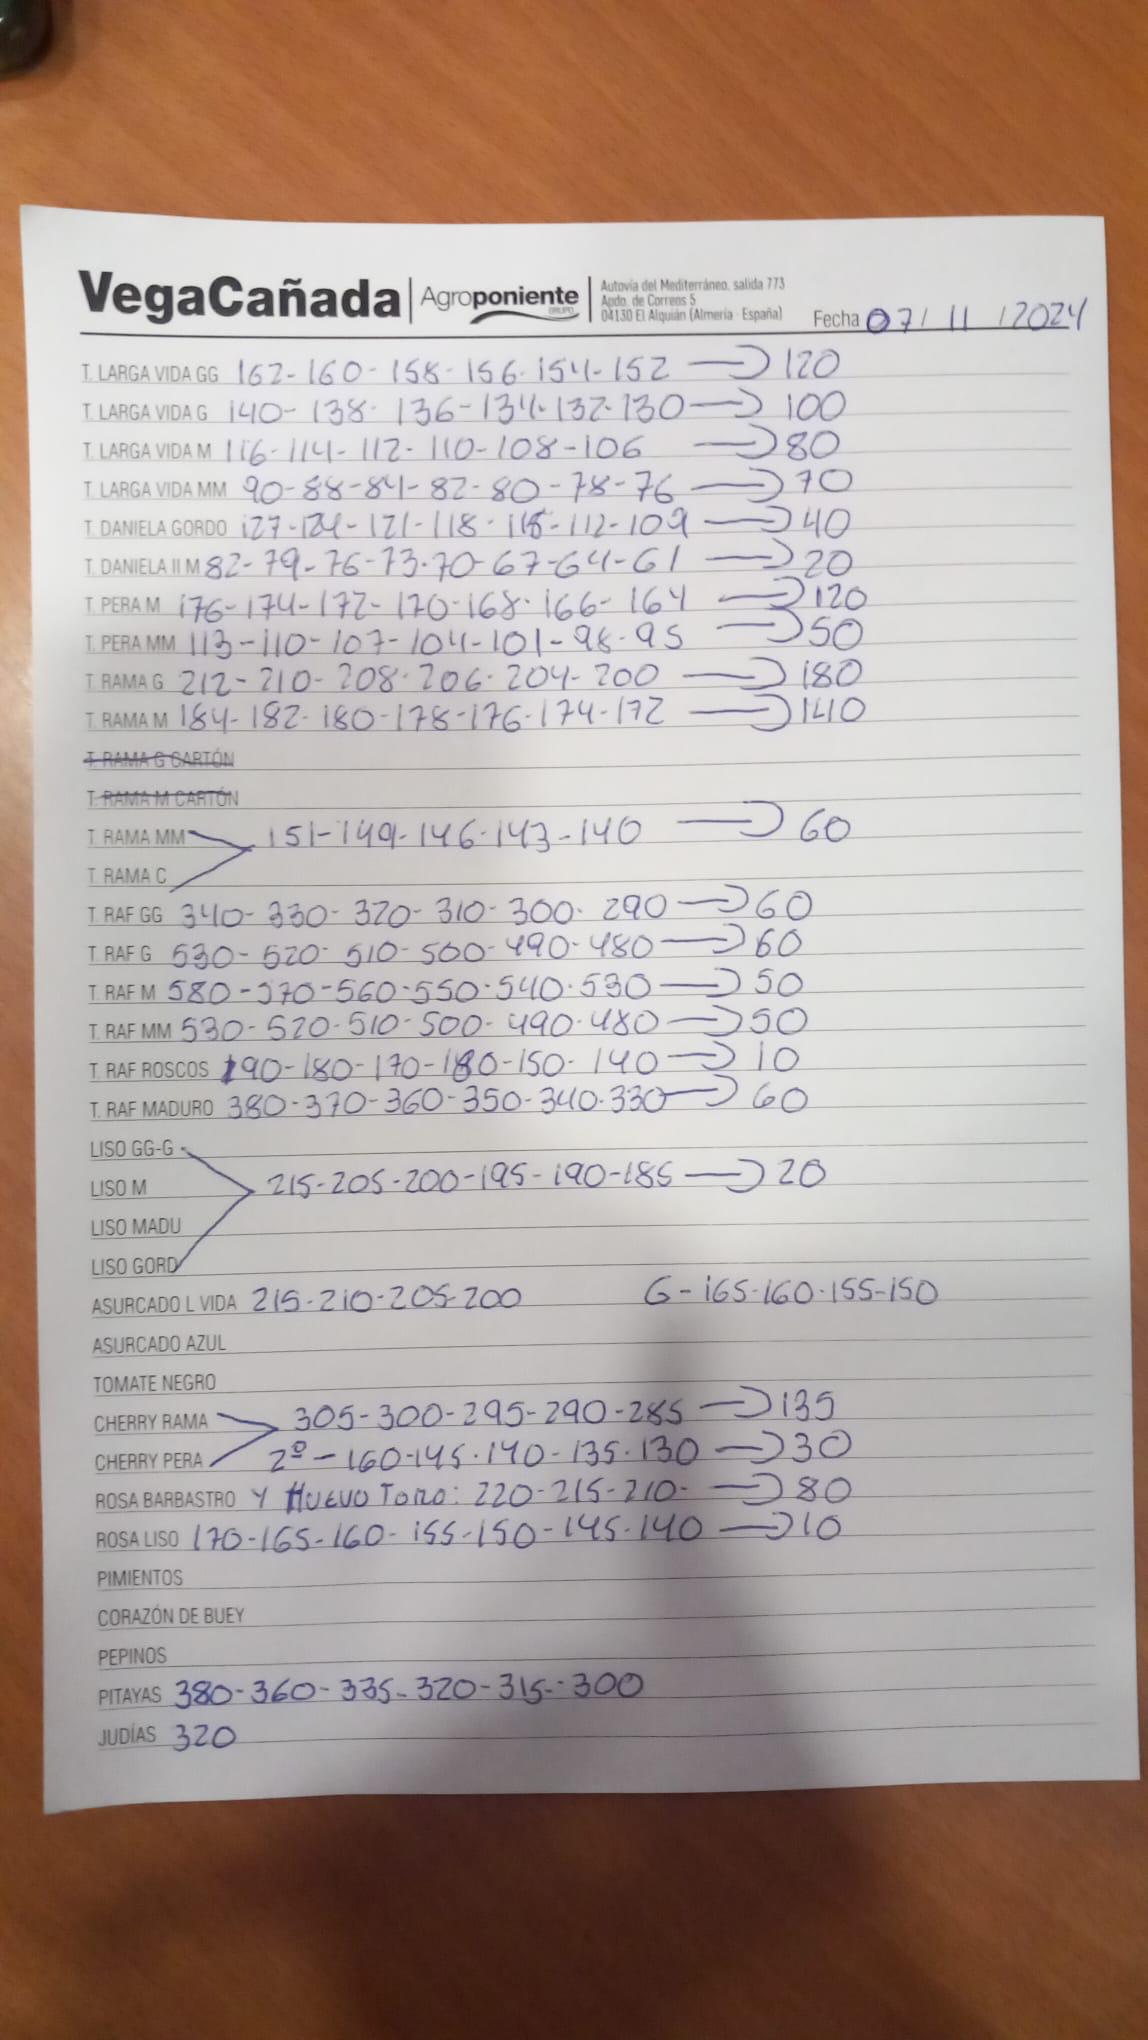 VegaCañada | Agroponiente GRUPO
Autovía del Mediterráneo, salida 773
Apdo. de Correos 5
04130 El Alquián (Almería - España)
Fecha 07/ 11 / 2024
T. LARGA VIDA GG 162-160-158-156-154-152 → 120
T. LARGA VIDA G 140-138-136-134-132-130 → 100
T. LARGA VIDA M 116-114-112-110-108-106 → 80
T. LARGA VIDA MM 90-88-84-82-80-78-76 → 70
T. DANIELA GORDO 127-124-121-118-115-112-109 → 40
T. DANIELA II M 82-79-76-73-70-67-64-61 → 20
T. PERA M 176-174-172-170-168-166-164 → 120
T. PERA MM 113-110-107-104-101-98-95 → 50
T. RAMA G 212-210-208-206-204-200 → 180
T. RAMA M 184-182-180-178-176-174-172 → 140
T. RAMA G CARTÓN
T. RAMA M CARTÓN
T. RAMA MM 151-149-146-143-140 → 60
T. RAMA C
T. RAF GG 340-330-320-310-300-290 → 60
T. RAF G 530-520-510-500-490-480 → 60
T. RAF M 580-570-560-550-540-530 → 50
T. RAF MM 530-520-510-500-490-480 → 50
T. RAF ROSCOS 190-180-170-180-150-140 → 10
T. RAF MADURO 380-370-360-350-340-330 → 60
LISO GG-G
LISO M 215-205-200-195-190-185 → 20
LISO MADU
LISO GORD
ASURCADO L VIDA 215-210-205-200 G-165-160-155-150
ASURCADO AZUL
TOMATE NEGRO
CHERRY RAMA 305-300-295-290-285 → 135
CHERRY PERA 2º-160-145-140-135-130 → 30
ROSA BARBASTRO Y HUEVO TORO: 220-215-210- → 80
ROSA LISO 170-165-160-155-150-145-140 → 10
PIMIENTOS
CORAZÓN DE BUEY
PEPINOS
PITAYAS 380-360-335-320-315-300
JUDÍAS 320